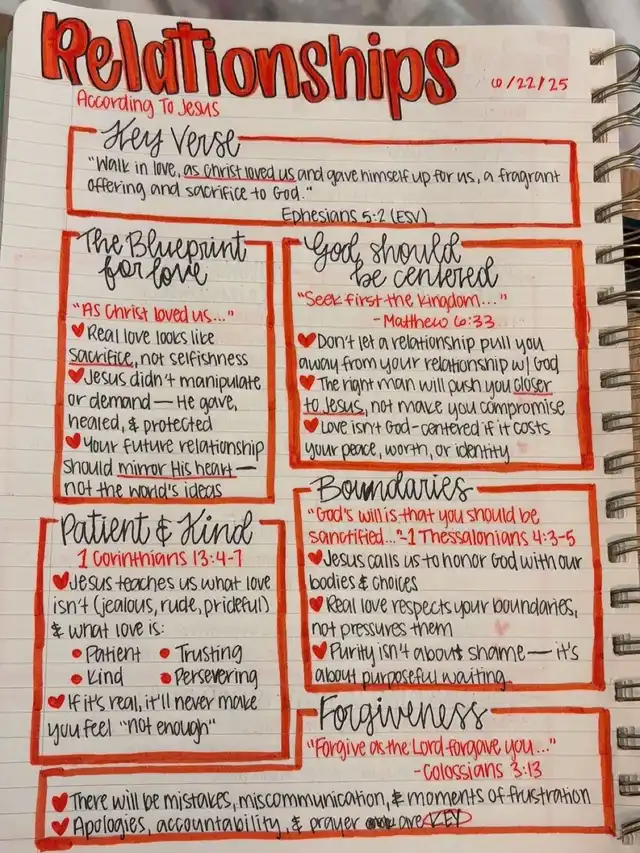 Relationships
6/22/25
According To Jesus
Key Verse
"Walk in love, as Christ loved us and gave himself up for us, a fragrant
offering and sacrifice to God."
Ephesians 5:2 (ESV)
The Blueprint
for love
"As Christ loved us..."
Real love looks like
sacrifice, not selfishness
Jesus didn't manipulate
or demand — He gave,
healed, & protected
Your future relationship
should mirror His heart —
not the world's ideas
God should
be centered
"Seek first the kingdom..."
- Matthew 6:33
Don't let a relationship pull you
away from your relationship w/ God
The right man will push you closer
to Jesus, not make you compromise
Love isn't God-centered if it costs
your peace, worth, or identity
Patient & Kind
1 Corinthians 13:4-7
Jesus teaches us what love
isn't (jealous, rude, prideful)
& what love is:
• Patient • Trusting
• Kind • Persevering
If it's real, it'll never make
you feel "not enough"
Boundaries
"God's will is that you should be
sanctified..."-1 Thessalonians 4:3-5
Jesus calls us to honor God with our
bodies & choices
Real love respects your boundaries,
not pressures them
Purity isn't about shame — it's
about purposeful waiting
Forgiveness
"Forgive as the Lord forgave you..."
- Colossians 3:13
There will be mistakes, miscommunication, & moments of frustration
Apologies, accountability, & prayer are KEY